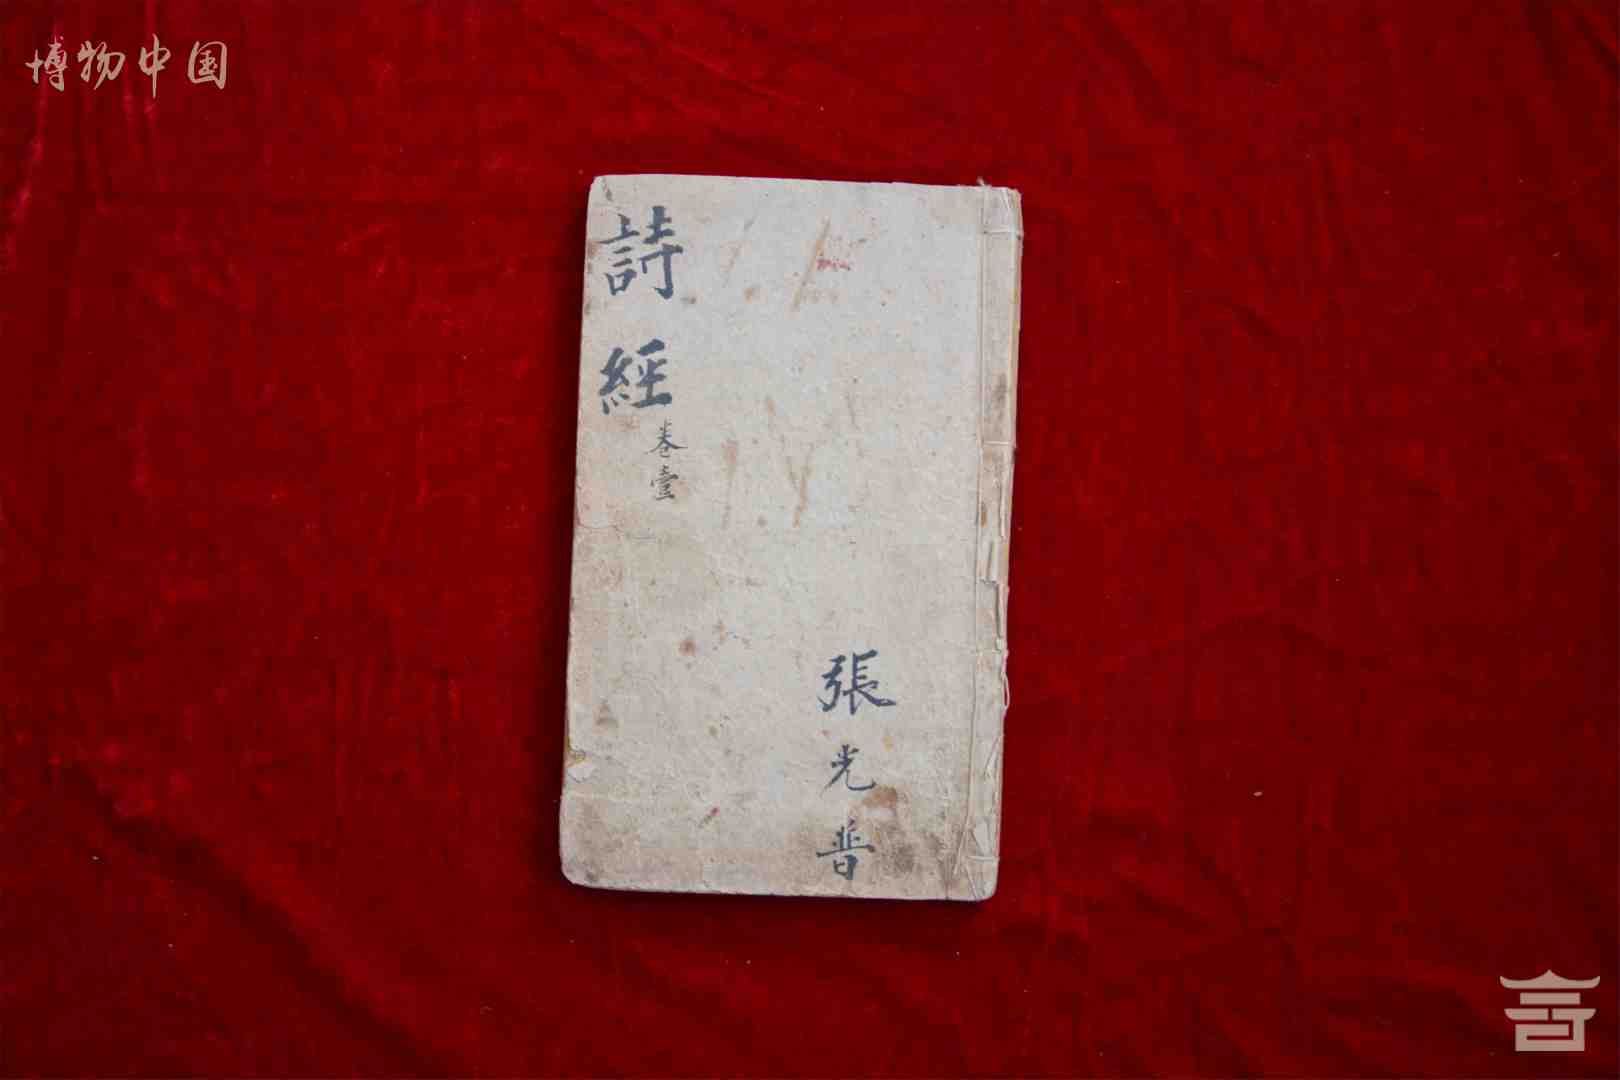 博物中国
詩經
卷壹
張光普